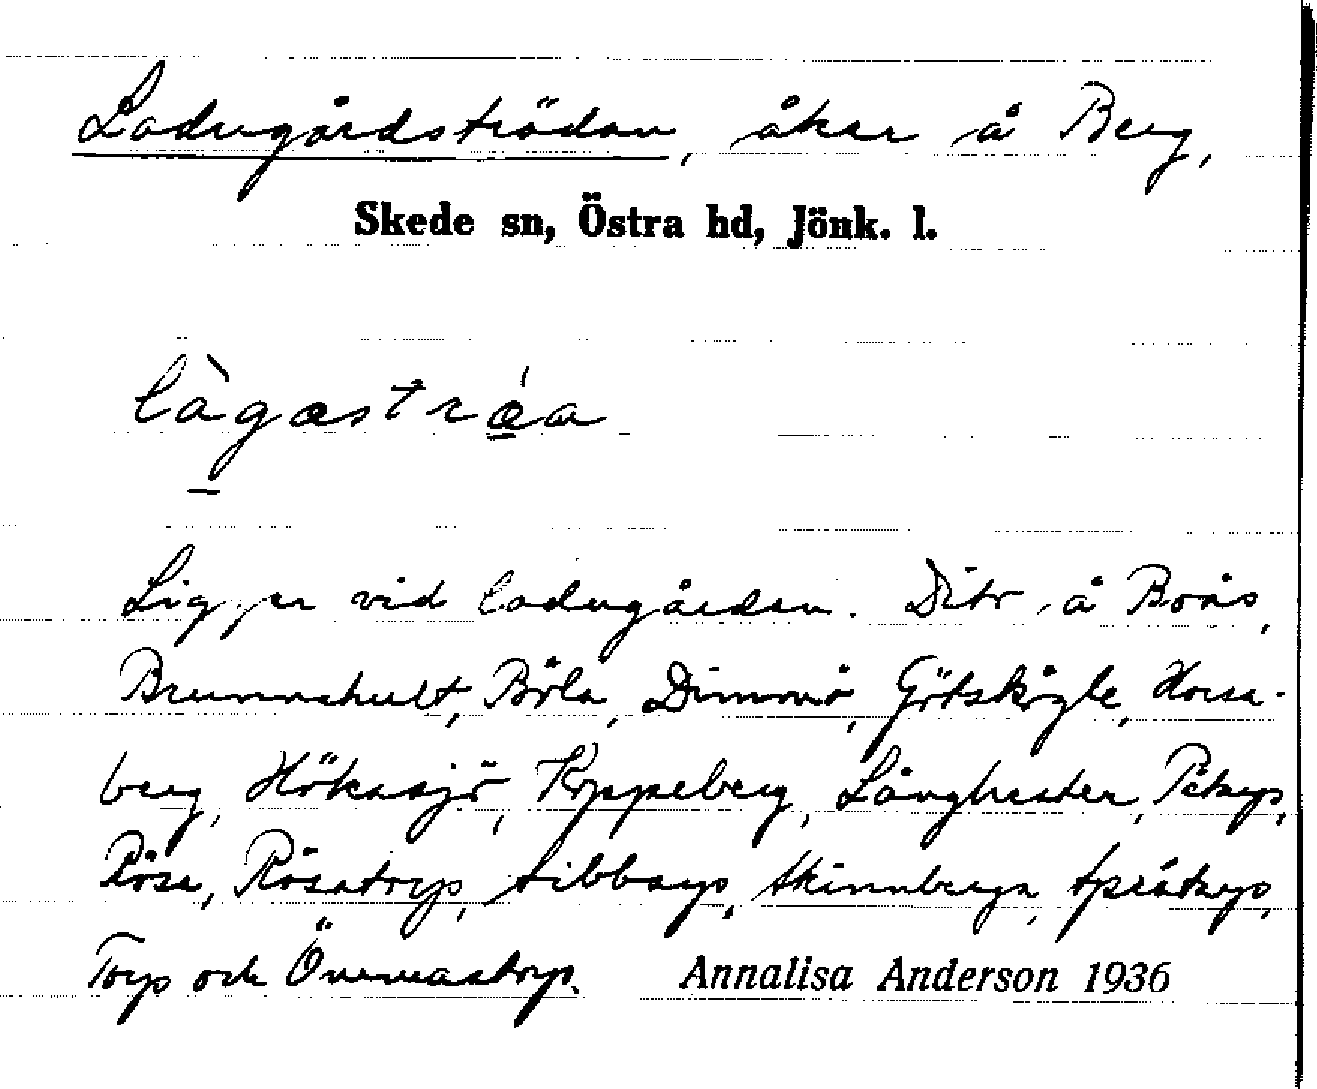 Ladugårdsträdan, åker å Berg,
Skede sn, Östra hd, Jönk. l.
làgæstrǽa
Ligger vid ladugården. Dito å Borås,
Brunnshult, Böla, Dimmö, Götskögle, Horsa-
berg, Hökasjö, Koppeberg, Långhester, Petarp,
Röse, Rösatorp, Sibbarp, Skinnberga, Sprätarp,
Torp och Övrarastorp. Annalisa Anderson 1936